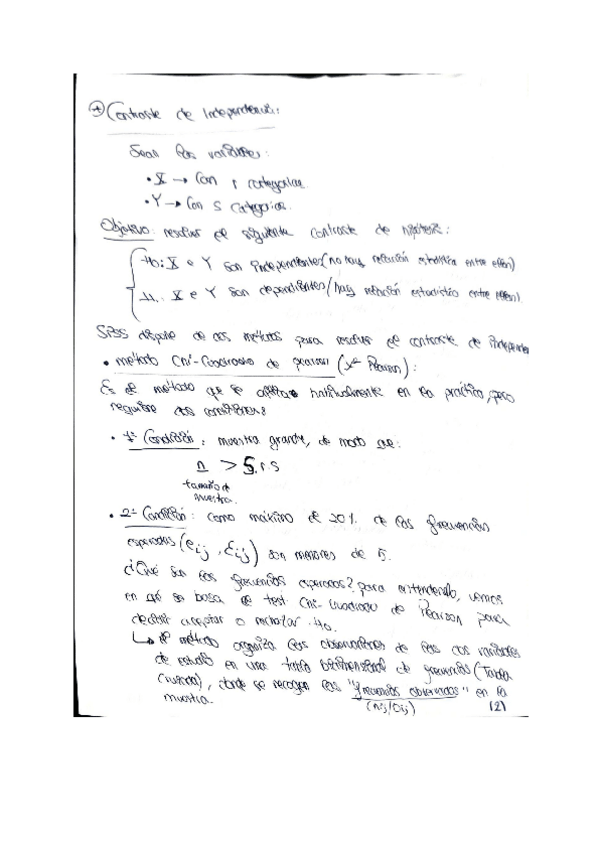 * Contraste de Independencia:
Sean las variables:
• X → Con r categorías.
• Y → Con s categorías.
Objetivo: resolver el siguiente contraste de hipótesis:
H₀: X e Y son independientes (no hay relación estadística entre ellas)
H₁: X e Y son dependientes (hay relación estadística entre ellas)
SPSS dispone de dos métodos para resolver el contraste de independen
• método Chi-Cuadrado de pearson (χ² Pearson):
Es el método que se aplica habitualmente en la práctica, pero
requiere dos condiciones:
• 1ª Condición: muestra grande, de modo que:
n > 5.r.s
tamaño de
muestra.
• 2ª Condición: como máximo el 20% de las frecuencias
esperadas (eij, Eij) son menores de 5.
¿Qué son las frecuencias esperadas? para entenderlo, vemos
en qué se basa el test Chi-Cuadrado de Pearson para
decidir aceptar o rechazar H₀.
↳ El método organiza las observaciones de las dos variables
de estudio en una tabla bidimensional de frecuencias (Tabla
Cruzada), donde se recogen las "frecuencias observadas" en la
muestra. (nij/Oij) (2)